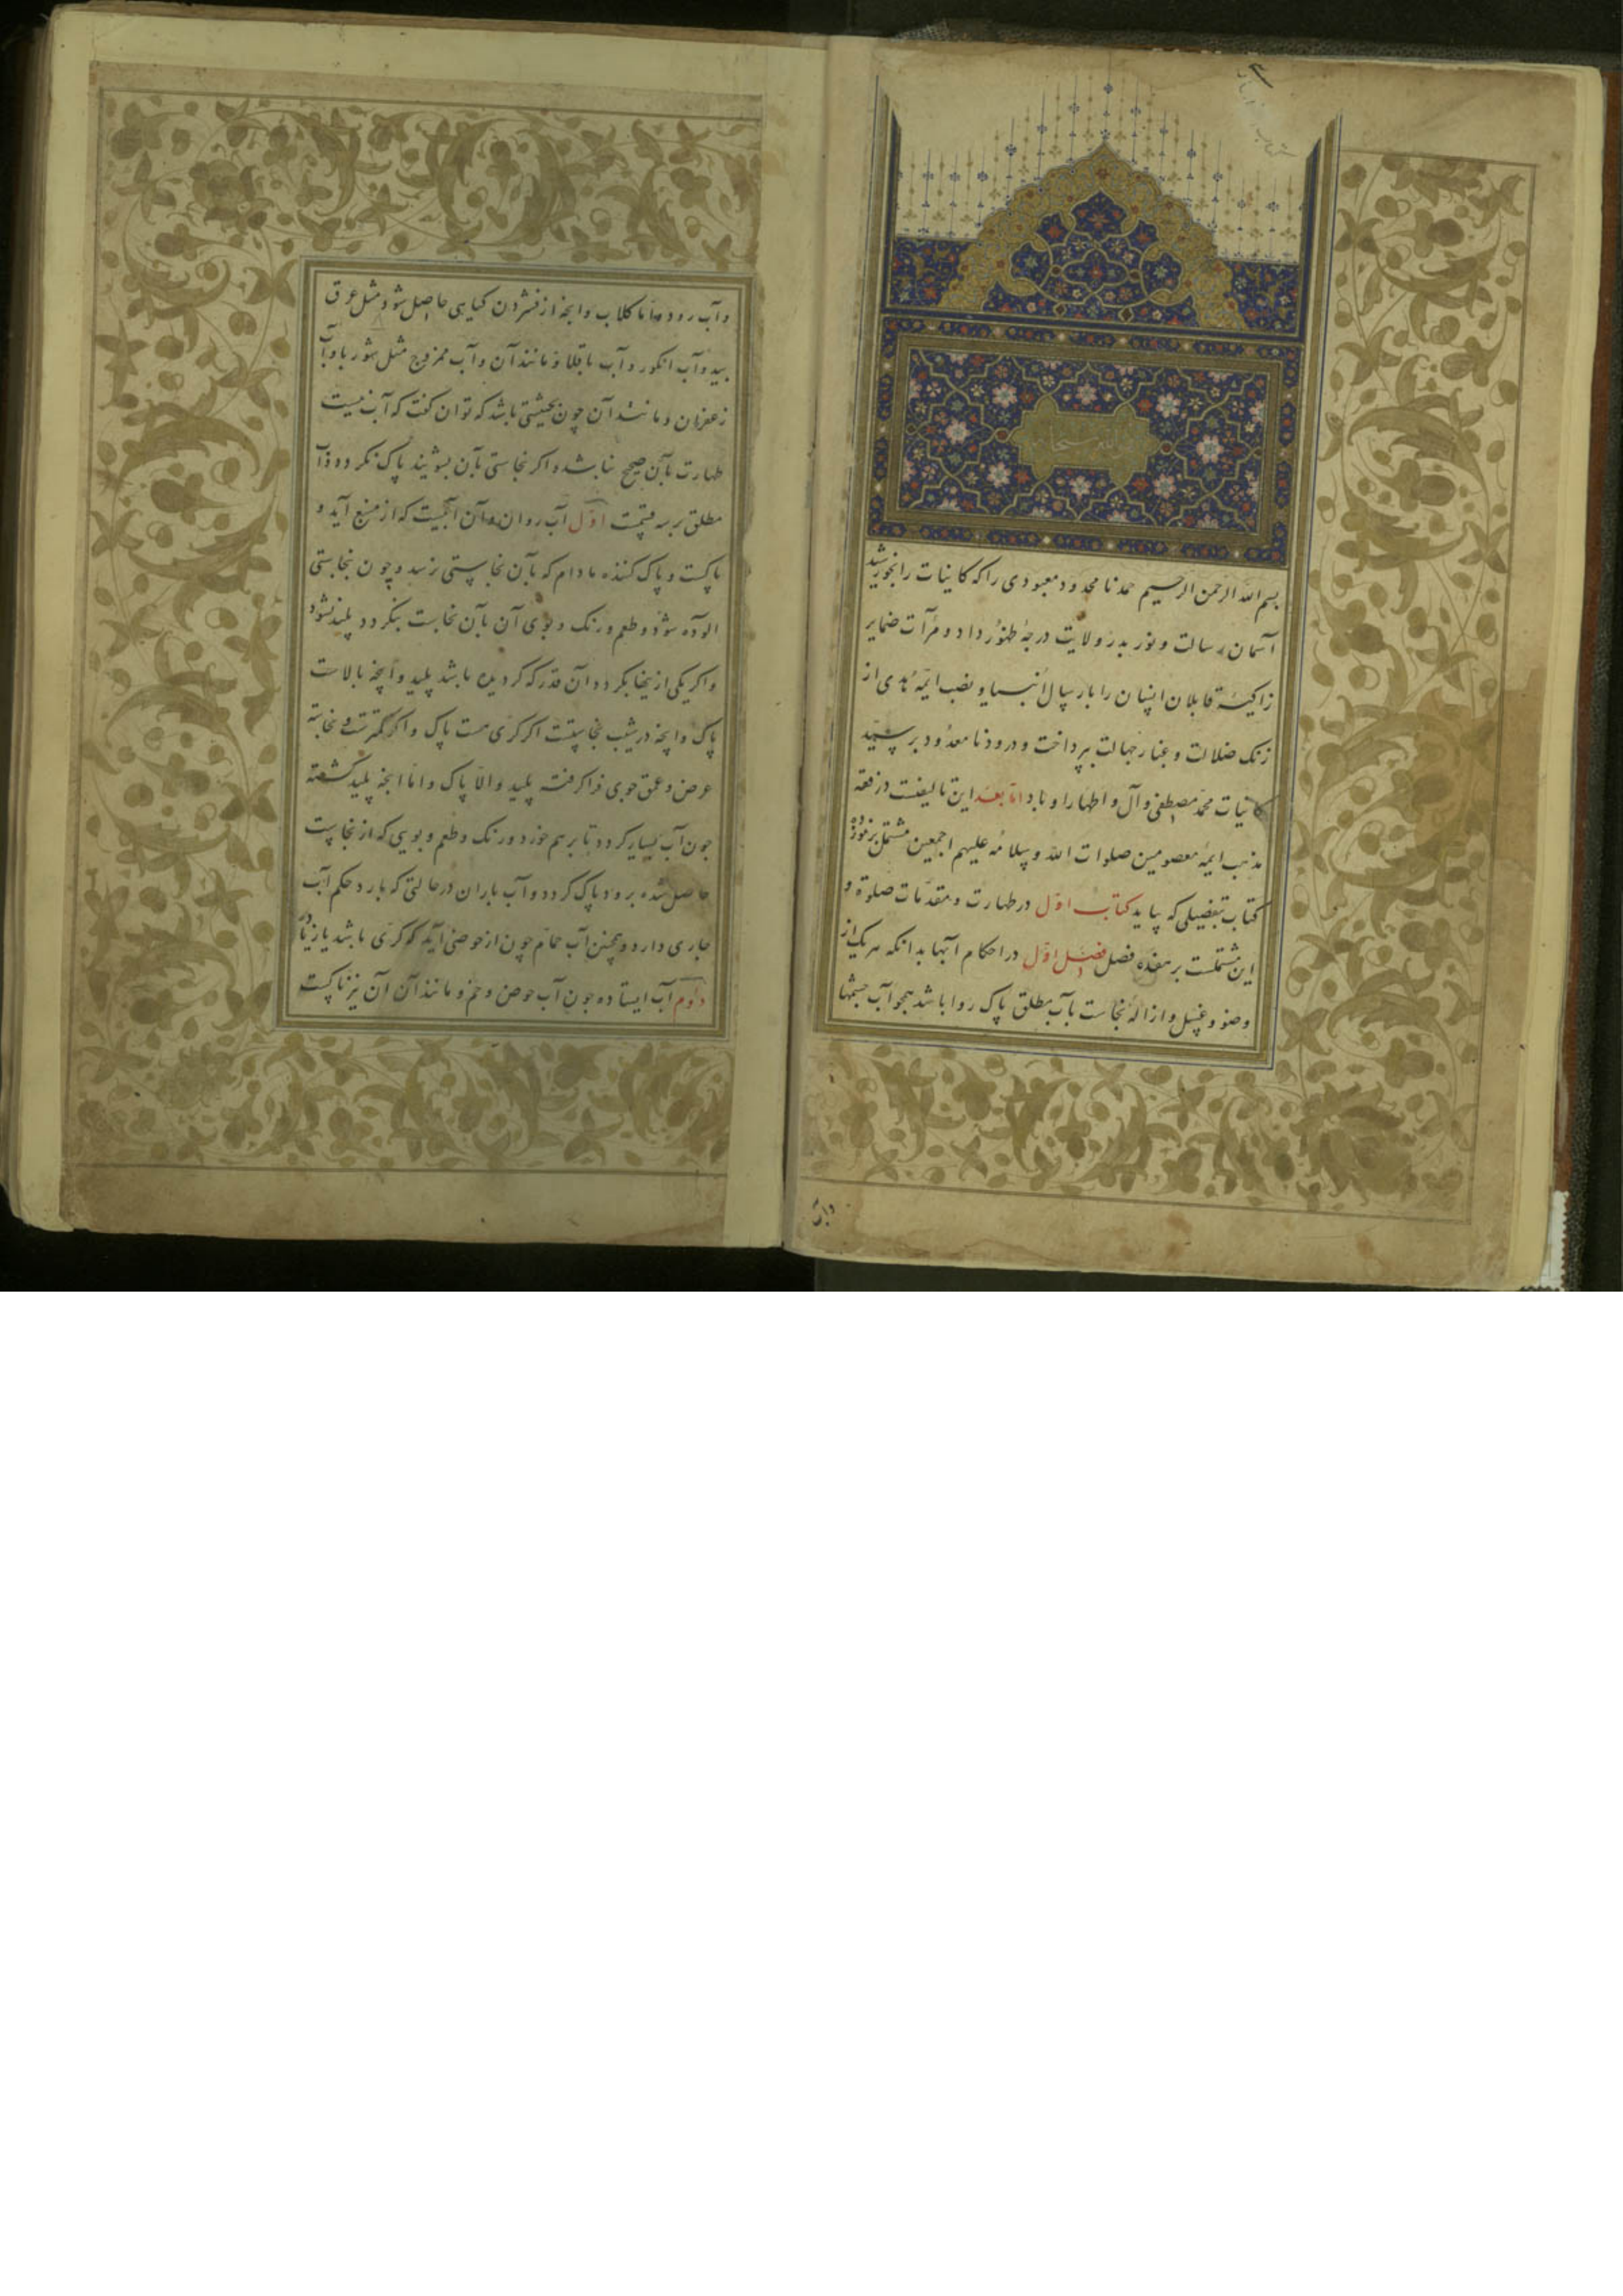 بسم الله الرحمن الرحیم حمد نامحدود معبودی را که کاینات را بخورشید
آسمان رسالت و نور بدر ولایت درجهٔ ظهور داد و مرآت ضمایر
زاکیهٔ قابلان انسان را بارسال انبیا و نصب ایمهٔ هدی از
زنک ضلالت و غبار جهالت بپرداخت و درود نامعدود بر سید
کاینات محمد مصطفی و آل و اطهار او باد اما بعد این تالیفیست در فقه
مذهب ایمهٔ معصومین صلوات الله و سلامه علیهم اجمعین مشتمل بر
کتاب بتفصیلی که بیاید کتاب اول در طهارت و مقدمات صلوة و
این مشتملست بر هفده فصل فصل اول در احکام آبها بدانکه هر یک از
وضو و غسل و ازالهٔ نجاست بآب مطلق پاک روا باشد همچو آب چشمها
وآب
وآب رود و اما کلاب و آنچه از فشردن کیاهی حاصل شود مثل عرق
بید و آب انکور و آب باقلا و مانند آن و آب ممزوج مثل شوربا و آب
زعفران و مانند آن چون بحیثیتی باشد که توان کفت که آب نیست
طهارت بآن صحیح نباشد و اکر نجاستی بآن بشویند پاک نکردد و آب
مطلق بر سه قسمت اول آب روان و آن آبیست که از منبع آید و
پاکست و پاک کننده مادام که بآن نجاستی نرسد و چون بنجاستی
الوده شود و طعم و رنک و بوی آن بآن نجاست بنکردد پلید نشود
واکر یکی از اینها بکردد آن قدر که کردیده باشد پلید و آنچه بالاست
پاک و آنچه در شیب نجاستست اکر کری هست پاک و اکر کمترست و نجاسة
عرض و عمق جوی فرا کرفته پلید و الا پاک و اما انچه پلید کشته
چون آب بسیار کردد تا برهم خورد و رنک و طعم و بویی که از نجاست
حاصل شده برود پاک کردد و آب باران در حالتی که بارد حکم آب
جاری دارد و همچنین آب حمام چون از حوضی آید که کری باشد یا زیاده
دوم آب ایستاده چون آب حوض و خم و مانند آن آن نیز پاکست